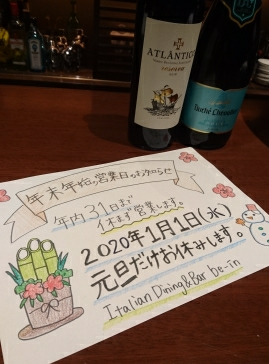 ATLÁNTICO
reserva
年末年始の営業日のお知らせ
年内31日まで
休まず営業します。
2020年1月1日(水)
元旦だけお休みします。
Italian Dining&Bar be-in